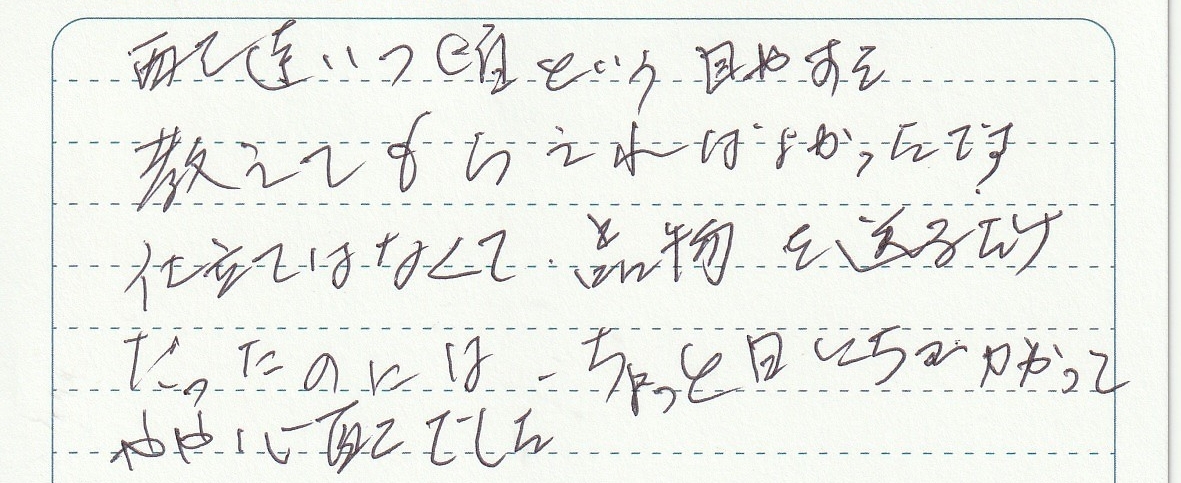 配送いつ頃という目やすを
教えてもらえればよかったです
仕立てはなくて、品物を送るだけ
だったのには、ちょっと日にちがかかって
やや心配でした